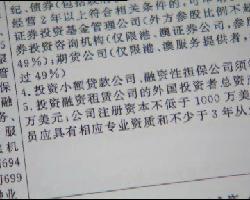 纪、债券(包括
经营2年以上符合相关条件的,可
证券投资基金管理公司(外方参股比例不
券投资咨询机构(仅限港、澳证券公司,参
49%);期货公司(仅限港、澳服务提供者,
过49%)
4.投资小额贷款公司、融资性担保公司须
5.投资融资租赁公司的外国投资者总资
万美元;公司注册资本不低于1000万美
员应具有相应专业资质和不少于3年从
服
机
694
699